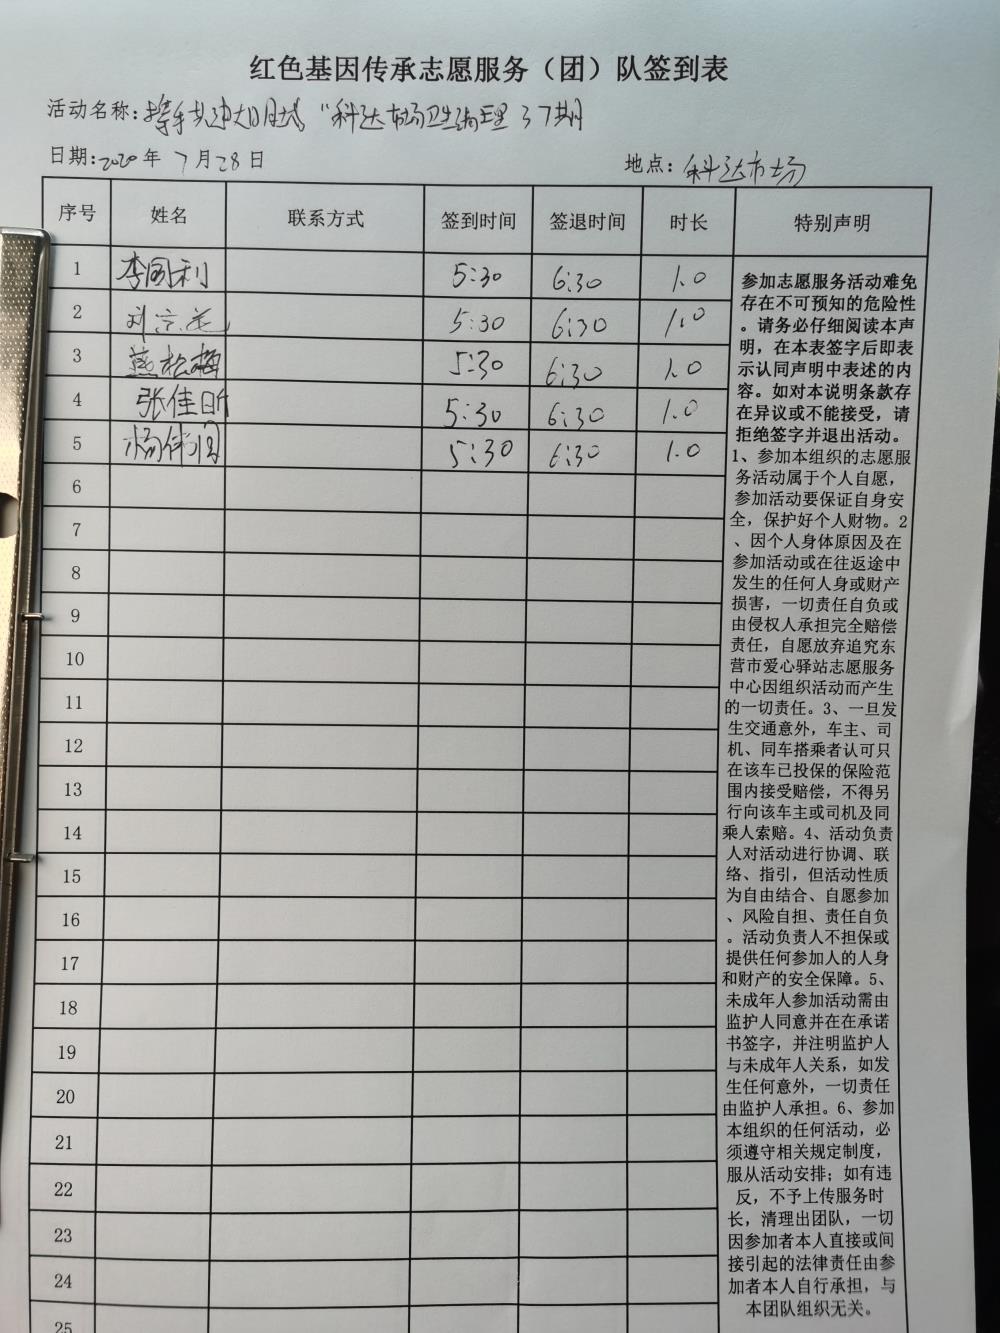 红色基因传承志愿服务（团）队签到表
活动名称:携手共建 "科达市场卫生清理37期
日期:2020年7月28日 地点:科达市场
序号 姓名 联系方式 签到时间 签退时间 时长 特别声明
1 李国利 5:30 6:30 1.0
2 刘 5:30 6:30 1.0
3 燕松梅 5:30 6:30 1.0
4 张佳昕 5:30 6:30 1.0
5 杨伟 5:30 6:30 1.0
6
7
8
9
10
11
12
13
14
15
16
17
18
19
20
21
22
23
24
25
参加志愿服务活动难免
存在不可预知的危险性
。请务必仔细阅读本声
明，在本表签字后即表
示认同声明中表述的内
容。如对本说明条款存
在异议或不能接受，请
拒绝签字并退出活动。
1、参加本组织的志愿服
务活动属于个人自愿，
参加活动要保证自身安
全，保护好个人财物。2
、因个人身体原因及在
参加活动或在往返途中
发生的任何人身或财产
损害，一切责任自负或
由侵权人承担完全赔偿
责任，自愿放弃追究东
营市爱心驿站志愿服务
中心因组织活动而产生
的一切责任。3、一旦发
生交通意外，车主、司
机、同车搭乘者认可只
在该车已投保的保险范
围内接受赔偿，不得另
行向该车主或司机及同
乘人索赔。4、活动负责
人对活动进行协调、联
络、指引，但活动性质
为自由结合、自愿参加
、风险自担、责任自负
。活动负责人不担保或
提供任何参加人的人身
和财产的安全保障。5、
未成年人参加活动需由
监护人同意并在在承诺
书签字，并注明监护人
与未成年人关系，如发
生任何意外，一切责任
由监护人承担。6、参加
本组织的任何活动，必
须遵守相关规定制度，
服从活动安排；如有违
反，不予上传服务时
长，清理出团队，一切
因参加者本人直接或间
接引起的法律责任由参
加者本人自行承担，与
本团队组织无关。